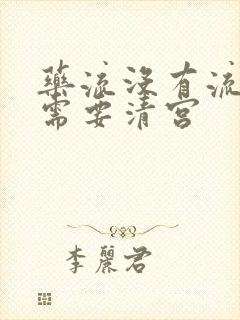 藥流沒有流
需要清宮
李麗君